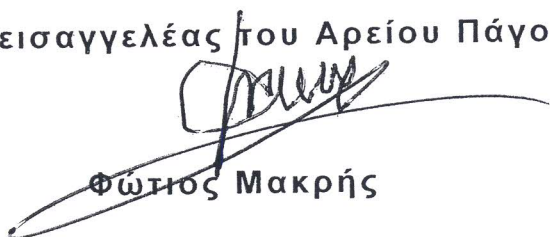 εισαγγελέας του Αρείου Πάγο
Φώτιος Μακρής